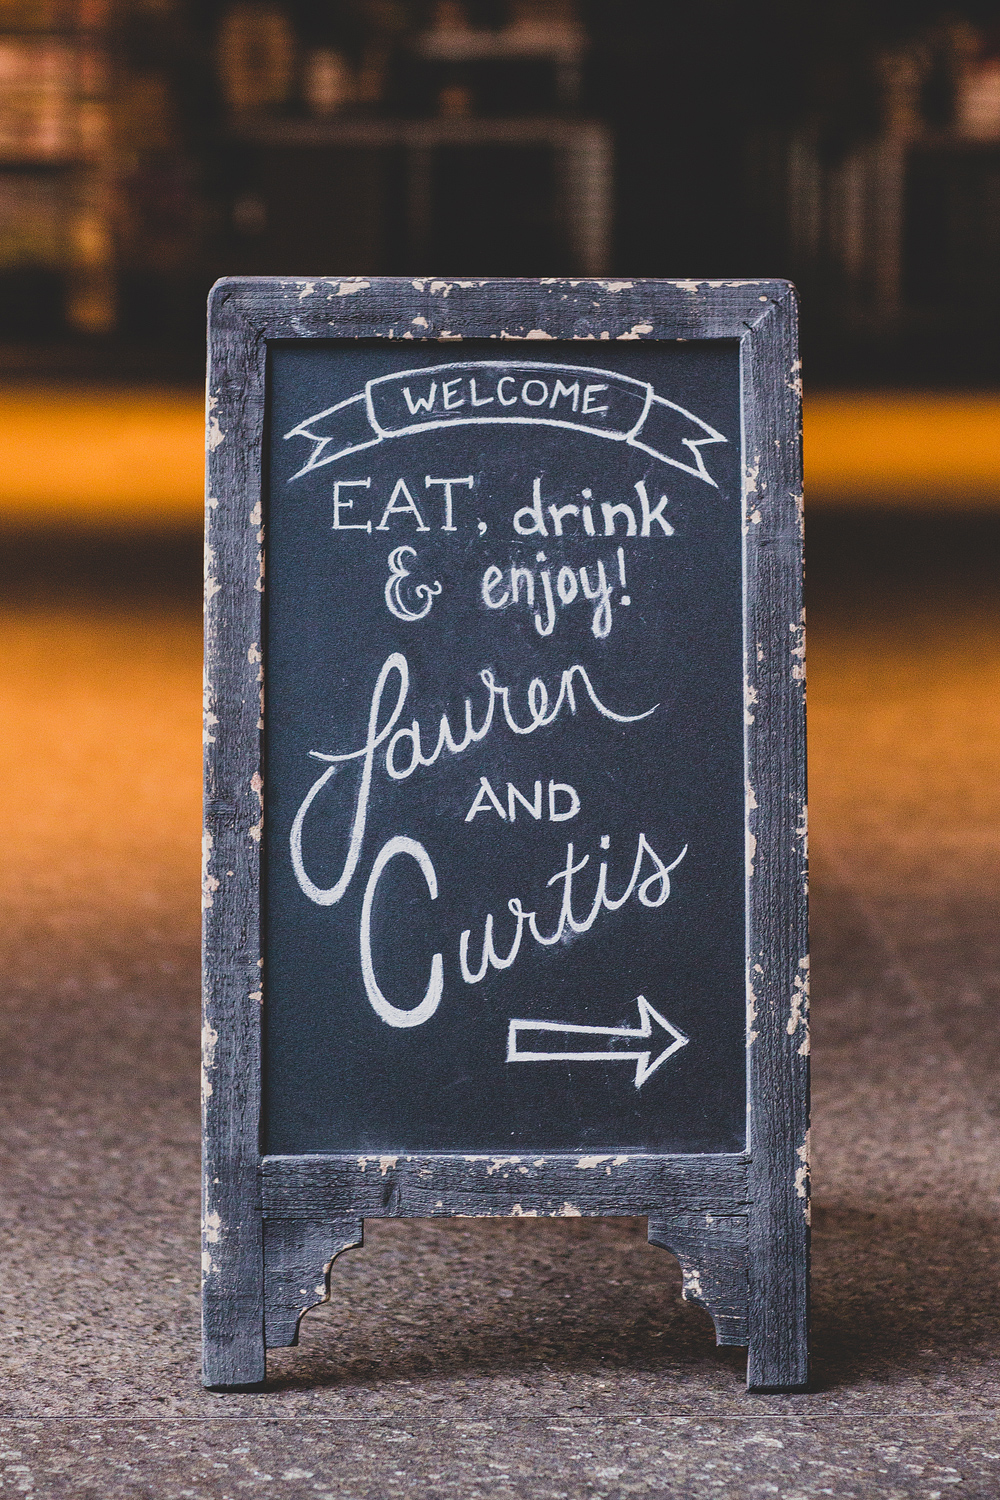 WELCOME
EAT, drink
& enjoy!
Lauren
AND
Curtis